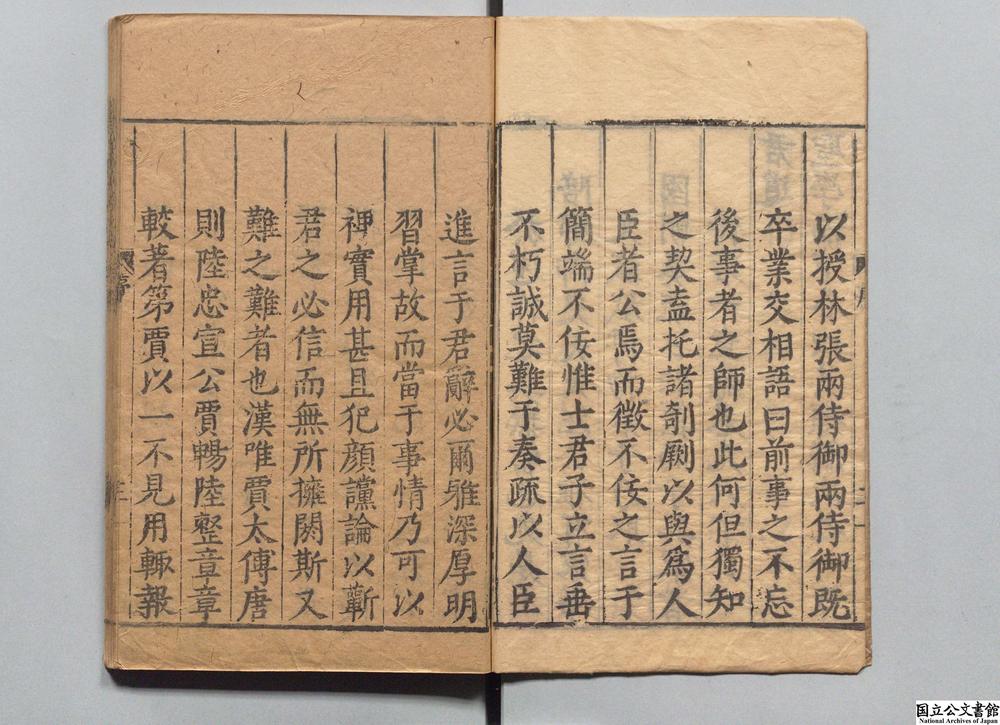 以授林張兩侍御兩侍御既
卒業交相語曰前事之不忘
後事者之師也此何但獨知
之契盍托諸剞劂以與爲人
臣者公焉而徵不佞之言于
簡端不佞惟士君子立言垂
不朽誠莫難于奏疏以人臣
進言于君辭必爾雅深厚明
習掌故而當于事情乃可以
裨實用甚且犯顔讜論以蘄
君之必信而無所擁閼斯又
難之難者也漢唯賈太傅唐
則陸忠宣公賈暢陸整章章
較著第賈以一不見用輙報
国立公文書館
National Archives of Japan